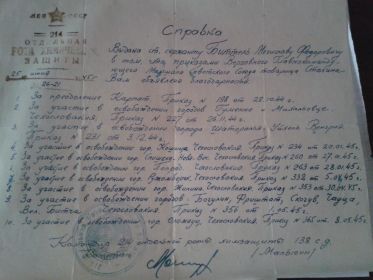 МВО СССР
214
ОТДЕЛЬНАЯ
РОТА ХИМИЧЕСКОЙ
ЗАЩИТЫ
Справка
Выдана ст. сержанту
в том, что приказами Верховного
Маршала Советского Союза товарища Сталина
Вам объявлена благодарность.
25 июня 45 г.
1. За преодоление Карпат Приказ № 198 от 22.10.44 г.
2. За участие в освобождении городов Гуменне и Михальовце
Чехословакия. Приказ № 227 от 26.11.44 г.
3. За участие в освобождении города Венгрия
Приказ № 231 от 3.12.44 г.
4. За участие в освобождении гор. Кошице Чехословакия. Приказ № 234 от 20.01.45 г.
5. За участие в освобождении гор. Чехословакия Приказ № 260 от 27.01.45 г.
6. За участие в освобождении гор. Чехословакия Приказ № 263 от 28.01.45 г.
7. За участие в освобождении гор. Чехословакия. Приказ № 338 5.04.45 г.
8. За участие в освобождении гор. Жилина Чехословакия. Приказ № 353 от 30.04.45 г.
9. За участие в освобождении городов, Богумин, Фриштат, Скочув, Чадца,
Вел. Битча Чехословакия. Приказ № 356 от 1.05.45 г.
10. За участие в освобождении гор. Оломоуц Чехословакия. Приказ № 365 от 8.05.45 г.
Командир 214 отдельной роты химзащиты 138 с.д.